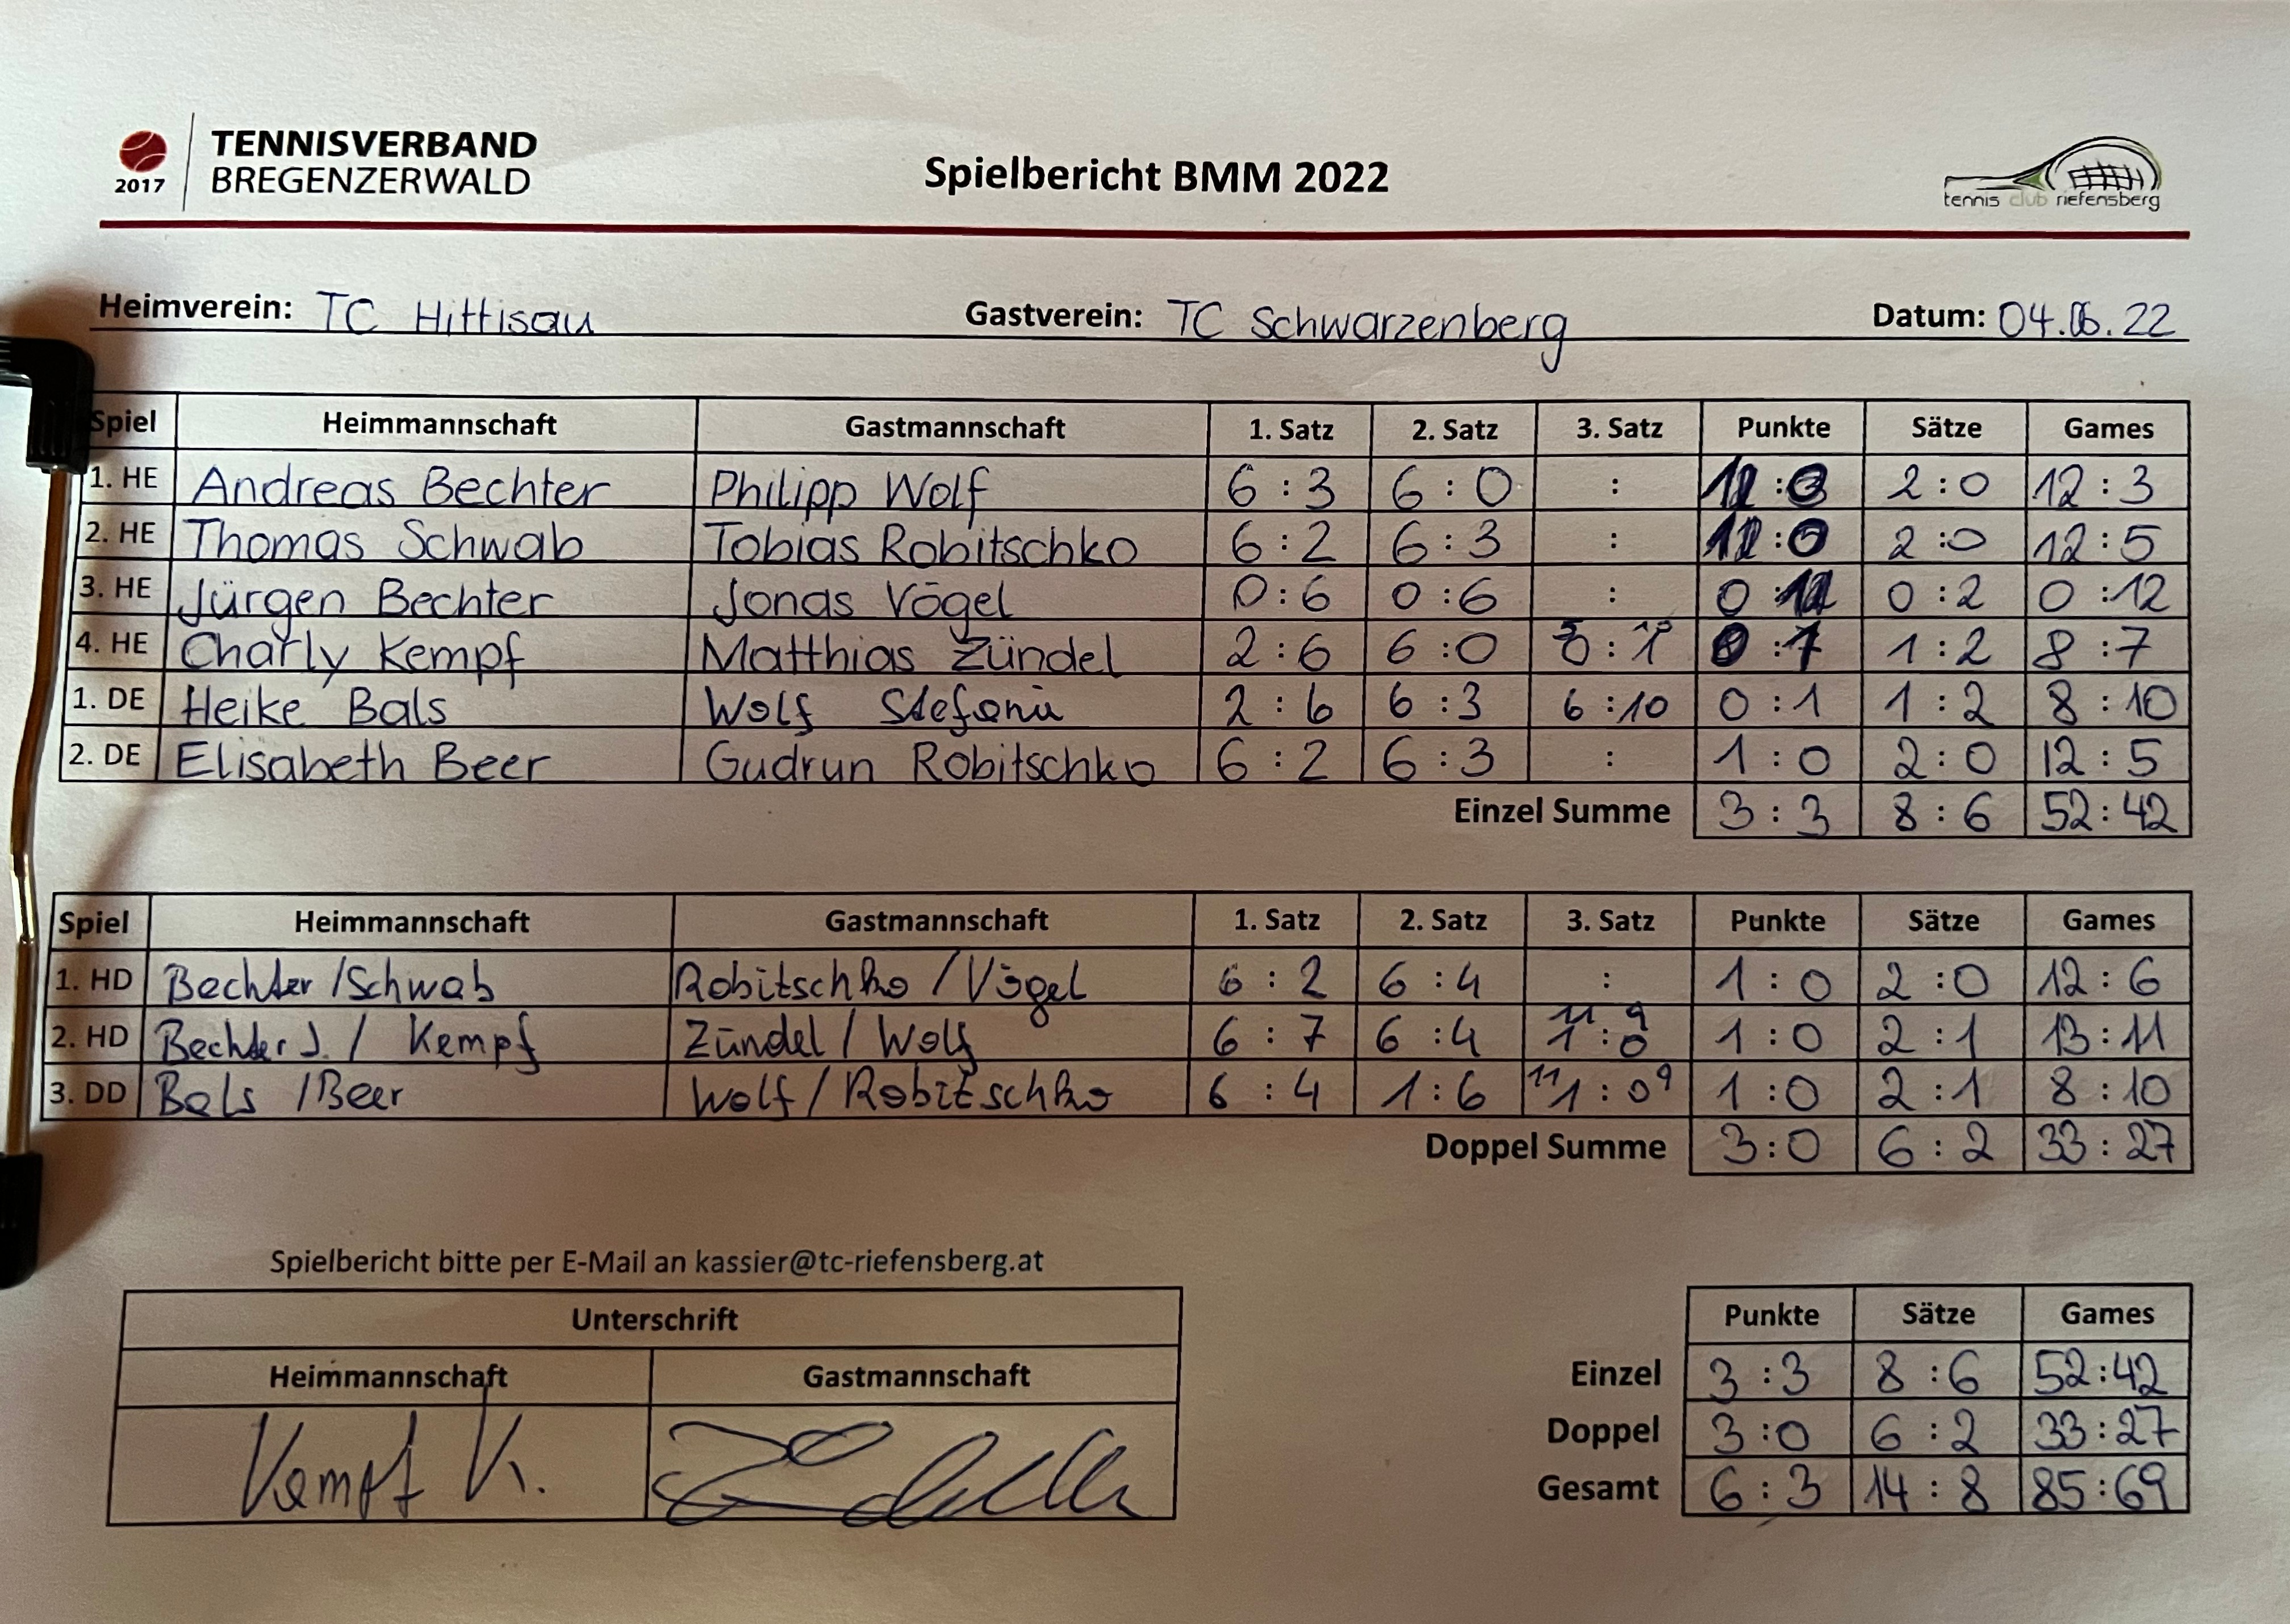 TENNISVERBAND
BREGENZERWALD
2017
Spielbericht BMM 2022
tennis club riefensberg
Heimverein: TC Hittisau Gastverein: TC Schwarzenberg Datum: 04.06.22
Spiel Heimmannschaft Gastmannschaft 1. Satz 2. Satz 3. Satz Punkte Sätze Games
1. HE Andreas Bechter Philipp Wolf 6:3 6:0 : 1:0 2:0 12:3
2. HE Thomas Schwab Tobias Robitschko 6:2 6:3 : 1:0 2:0 12:5
3. HE Jürgen Bechter Jonas Vögel 0:6 0:6 : 0:1 0:2 0:12
4. HE Charly Kempf Matthias Zündel 2:6 6:0 : 0:1 1:2 8:7
1. DE Heike Bals Wolf Stefanie 2:6 6:3 6:10 0:1 1:2 8:10
2. DE Elisabeth Beer Gudrun Robitschko 6:2 6:3 : 1:0 2:0 12:5
Einzel Summe 3:3 8:6 52:42
Spiel Heimmannschaft Gastmannschaft 1. Satz 2. Satz 3. Satz Punkte Sätze Games
1. HD Bechter/Schwab Robitschko/Vögel 6:2 6:4 : 1:0 2:0 12:6
2. HD Bechter J./Kempf Zündel/Wolf 6:7 6:4 11 9 1:0 1:0 2:1 13:11
3. DD Bals/Beer Wolf/Robitschko 6:4 1:6 11 1:0 9 1:0 2:1 8:10
Doppel Summe 3:0 6:2 33:27
Spielbericht bitte per E-Mail an kassier@tc-riefensberg.at
Unterschrift
Heimmannschaft Gastmannschaft
Kempf K.
Punkte Sätze Games
Einzel 3:3 8:6 52:42
Doppel 3:0 6:2 33:27
Gesamt 6:3 14:8 85:69